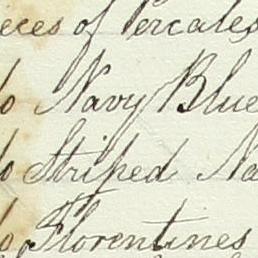 ieces of Percales
do Navy Blue
do Striped Na
do Florentines